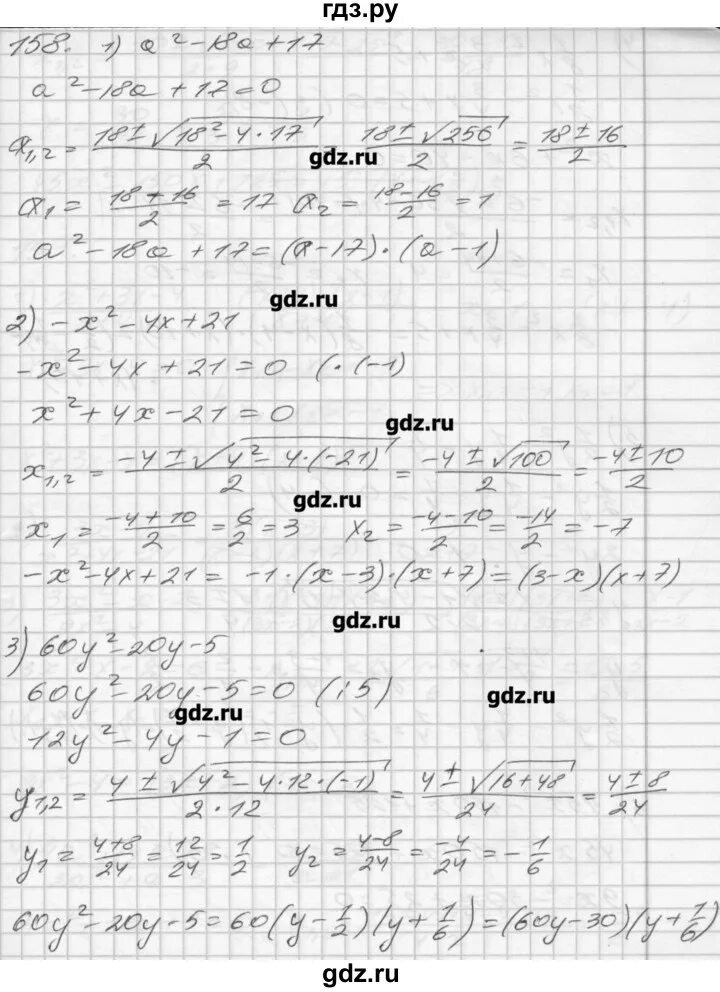 гдз.ру
158. 1) a² - 18a + 17
a² - 18a + 17 = 0
a₁,₂ = (18 ± √(18² - 4·17))/2 = (18 ± √256)/2 = (18 ± 16)/2
gdz.ru
a₁ = (18 + 16)/2 = 17 a₂ = (18 - 16)/2 = 1
a² - 18a + 17 = (a - 17)·(a - 1)
gdz.ru
2) -x² - 4x + 21
-x² - 4x + 21 = 0 (·(-1)
x² + 4x - 21 = 0
gdz.ru
x₁,₂ = (-4 ± √(4² - 4·(-21)))/2 = (-4 ± √100)/2 = (-4 ± 10)/2
gdz.ru
x₁ = (-4 + 10)/2 = 6/2 = 3 x₂ = (-4 - 10)/2 = -14/2 = -7
-x² - 4x + 21 = -1·(x - 3)·(x + 7) = (3 - x)(x + 7)
gdz.ru
3) 60y² - 20y - 5
60y² - 20y - 5 = 0 (:5)
gdz.ru
gdz.ru
12y² - 4y - 1 = 0
y₁,₂ = (4 ± √(4² - 4·12·(-1)))/(2·12) = (4 ± √(16 + 48))/24 = (4 ± 8)/24
y₁ = (4+8)/24 = 12/24 = 1/2 y₂ = (4-8)/24 = -4/24 = -1/6
60y² - 20y - 5 = 60(y - 1/2)(y + 1/6) = (60y - 30)(y + 1/6)
gdz.ru